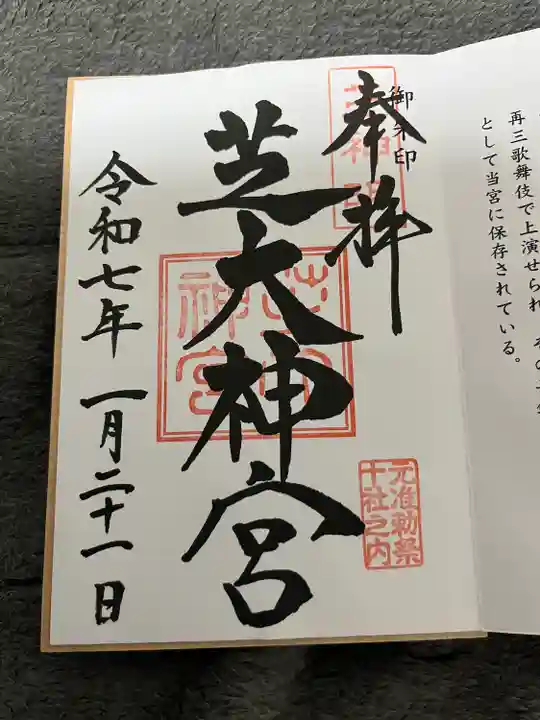 再三歌舞伎で上演せられ、その
として当宮に保存されている。
御朱印
奉拝
芝神明
芝大神宮
芝大神宮
元准勅祭
十社之内
令和七年 一月二十一日